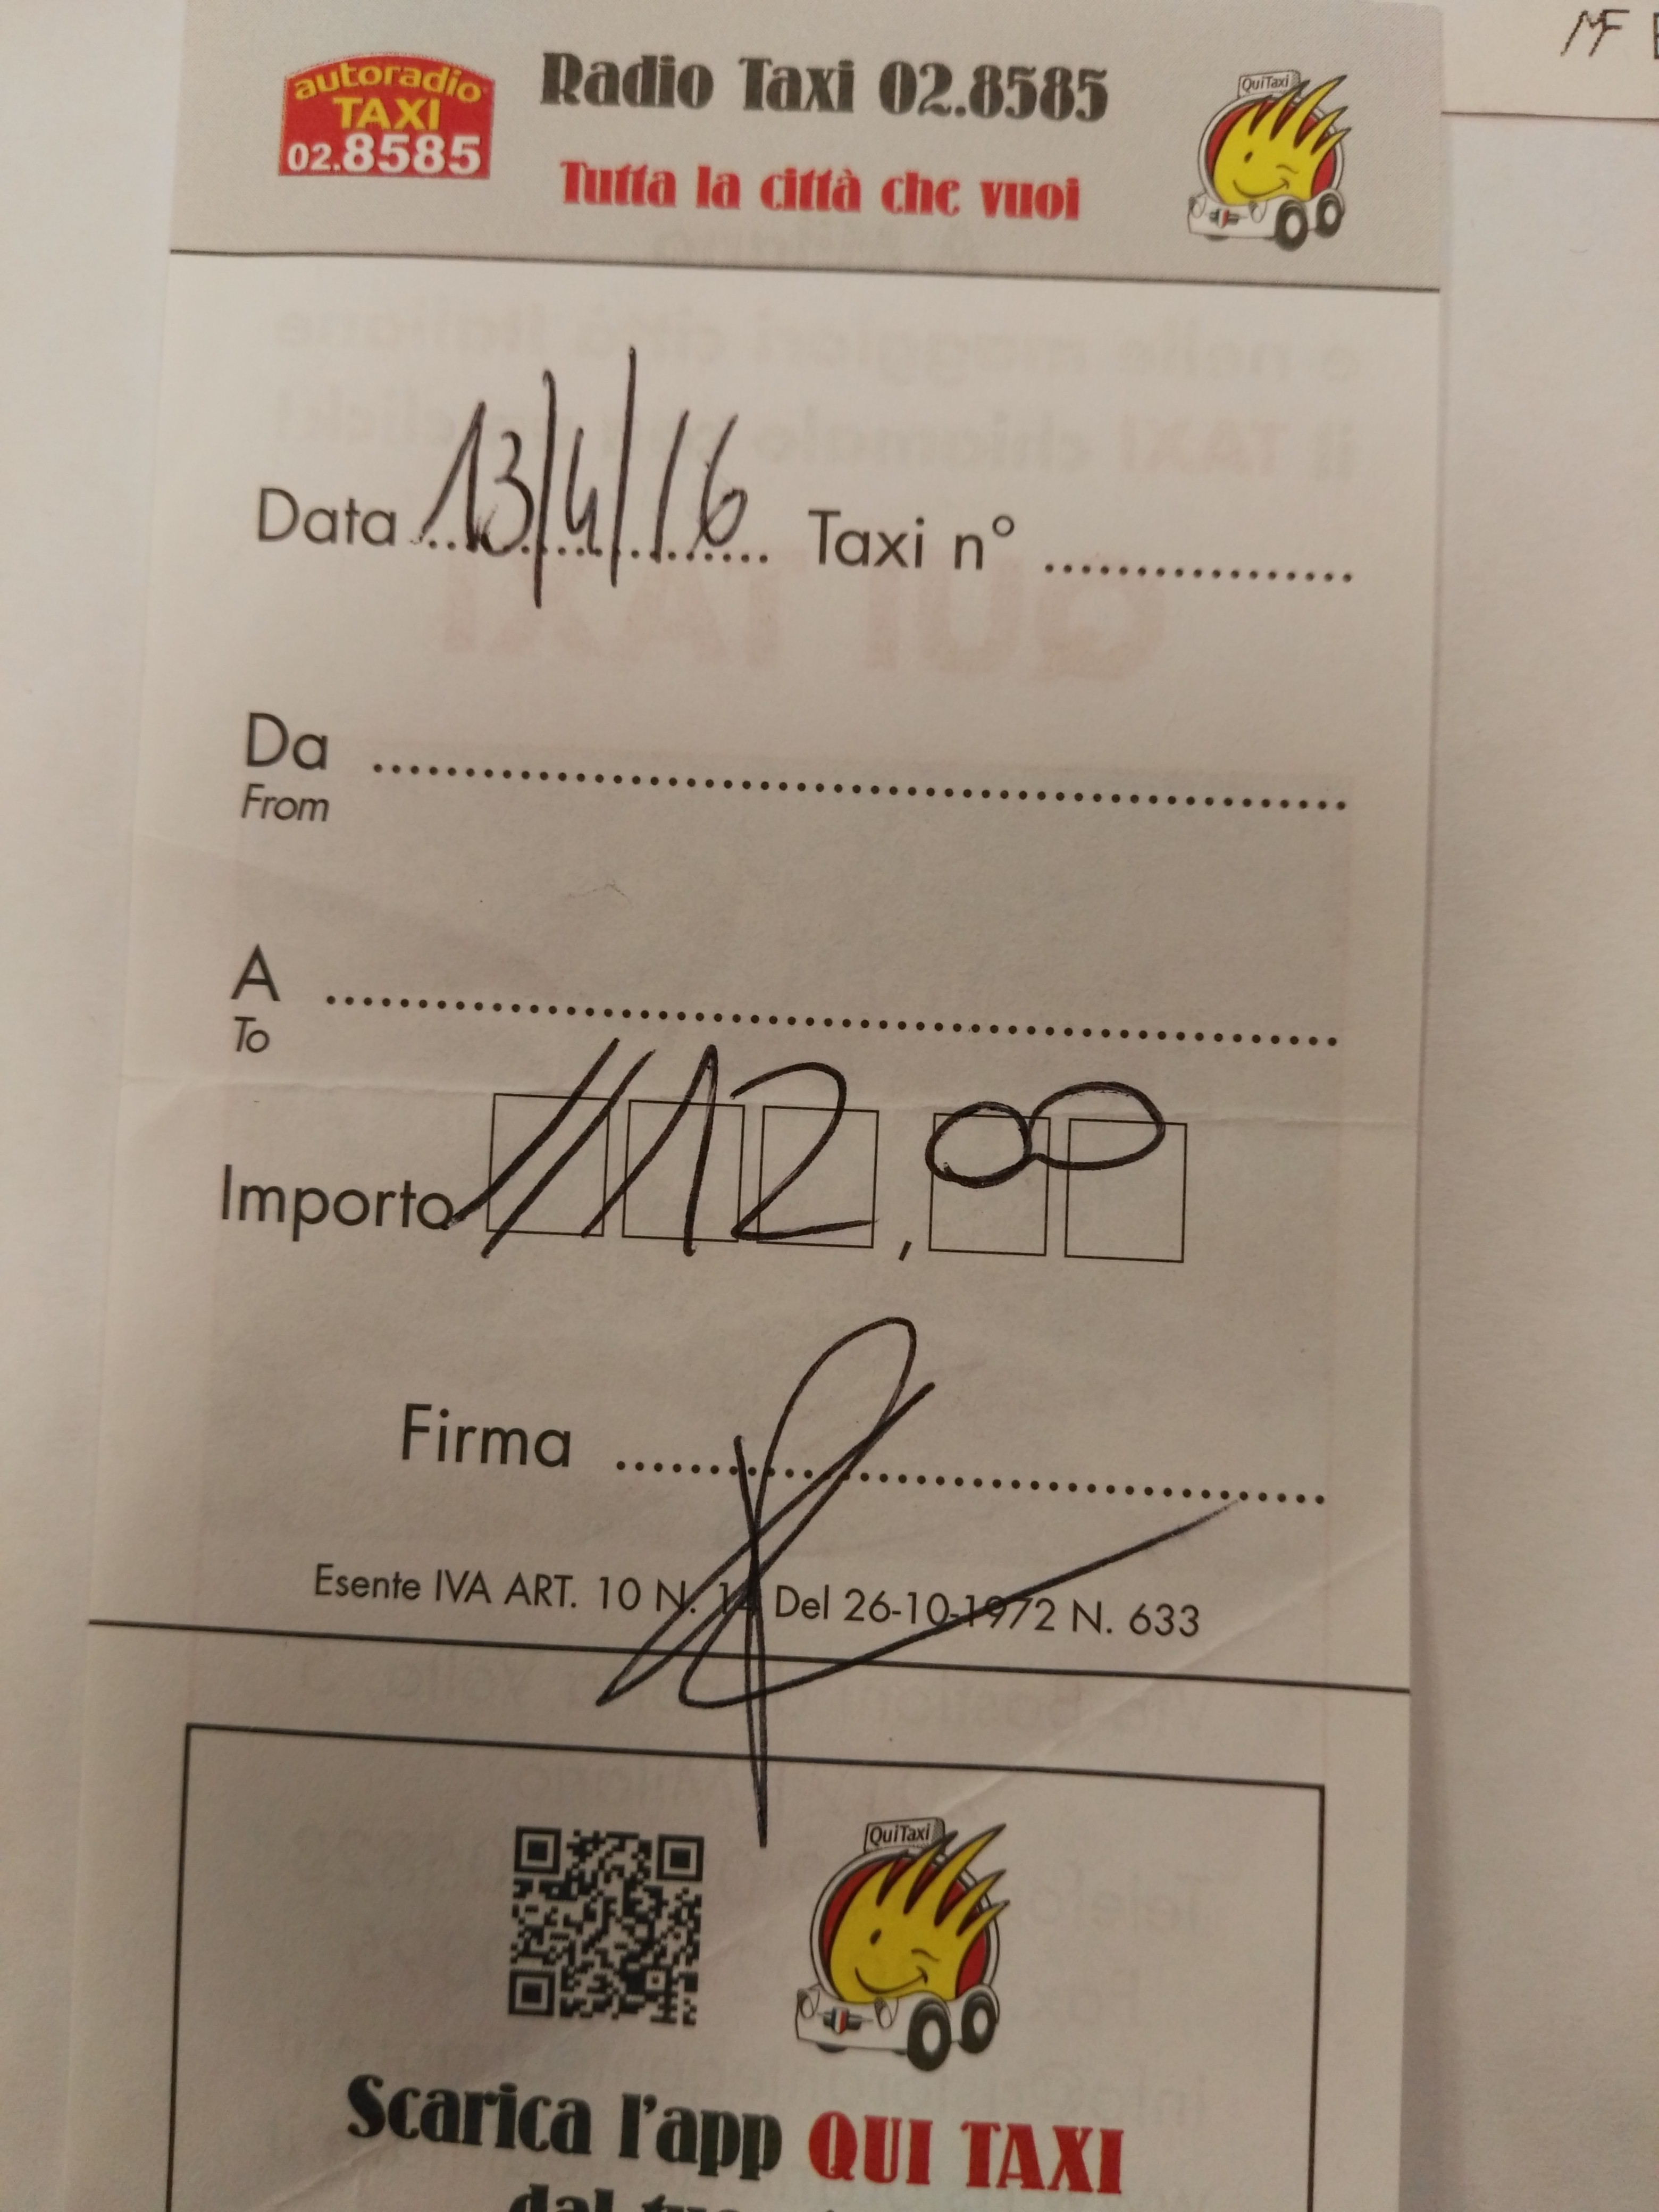 MF
autoradio
TAXI
02.8585
Radio Taxi 02.8585
Tutta la città che vuoi
QuiTaxi
Data 13/4/16 Taxi n° ..................
Da
From
A
To
Importo //12,00
Firma
Esente IVA ART. 10 N. 14 Del 26-10-1972 N. 633
QuiTaxi
Scarica l'app QUI TAXI